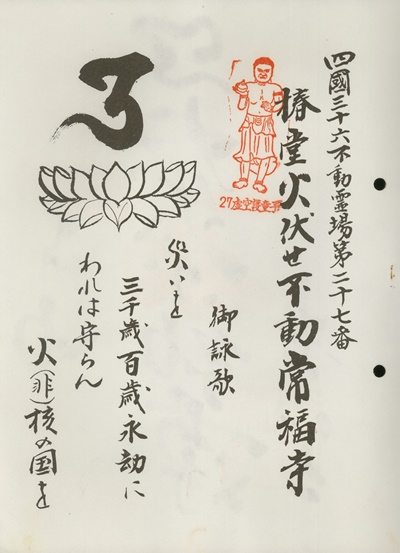 四國三十六不動霊場第二十七番
椿堂火伏せ不動常福寺
御詠歌
災いを
三千歳百歳永劫に
われは守らん
火(非)核の国を